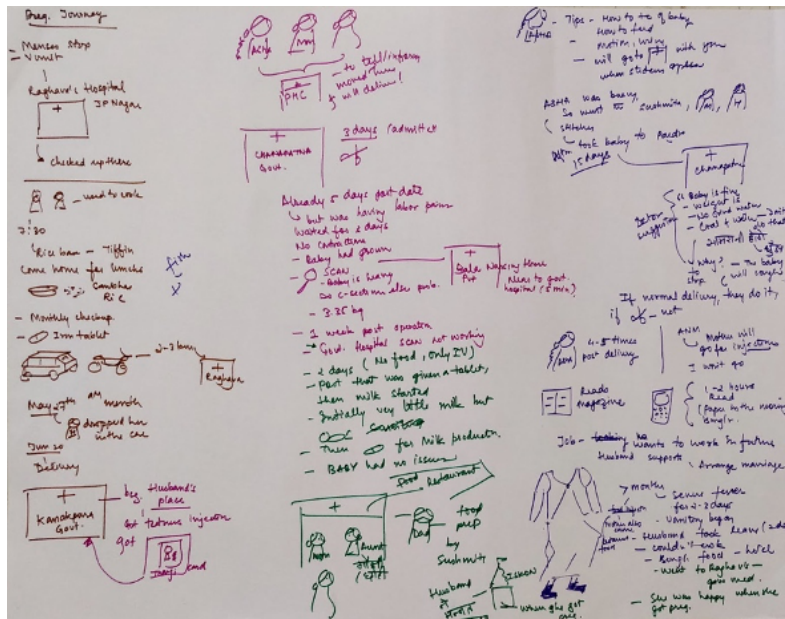 Preg. Journey
Menses stop
- Vomit
Raghava's Hospital
JP Nagar
checked up there
- used to work
7:30
Rice bran - Tiffin
come home for lunch
fish
Sambhar
Rice
- Monthly checkup
- Iron tablet
2-3 hrs
Raghava
May 27th AM month
dropped her
in the car
Jun 20
Delivery
Kanakpura
Govt.
bcz. Husband's
place
Got tetnus injection
got
card
ASHA
Mom
PHC
to tell/inform
moved here
& will deliver!
Govt.
3 days (admitted)
Already 5 days post date
but was having labor pains
Waited for 2 days
No contractions
- Baby had grown
SCAN
- Baby is heavy
So C-section also prob.
- 3.35 kg
- 1 week post operation
Govt. Hospital scan not working
Bala Nursing Home
Pvt
Near to govt.
hospital (5 min)
- 2 days (No food, only IV)
- Post that was given a tablet,
then milk started
- Initially very little milk but
- Then for milk production
- BABY had no issues
Food
Restaurant
Mom
Aunt
Dad
food
prep
by
Sushmita
Husband
at
Hotel
ISKON
When she got
ASHA
- Tips - How to tc of baby
How to feed
- motion, urine
- will go to with you
when stitches open
ASHA was busy,
so went to Sushmita, M, H
stitches
took baby to Paedia
15 days
Chanapatna
Doctor
suggestion
Baby is fine
- weight is
- No Grind water
Why?
to
stop
The baby
will cough
If normal delivery, they do it,
if - not
ASHA
4-5 times
post delivery
ANM
Mother will
go for injections
I won't go
Reads
magazine
1-2 hours
Read
(Paper in the morning
Job - wants to work in future
Husband supports
Arrange marriage
7 months
Severe fever
for 2-3 days
- Vomiting began
- Husband took leave (2 days)
- couldn't work
food - hotel
- Went to Raghava -
gave med.
- She was happy when she
got preg.